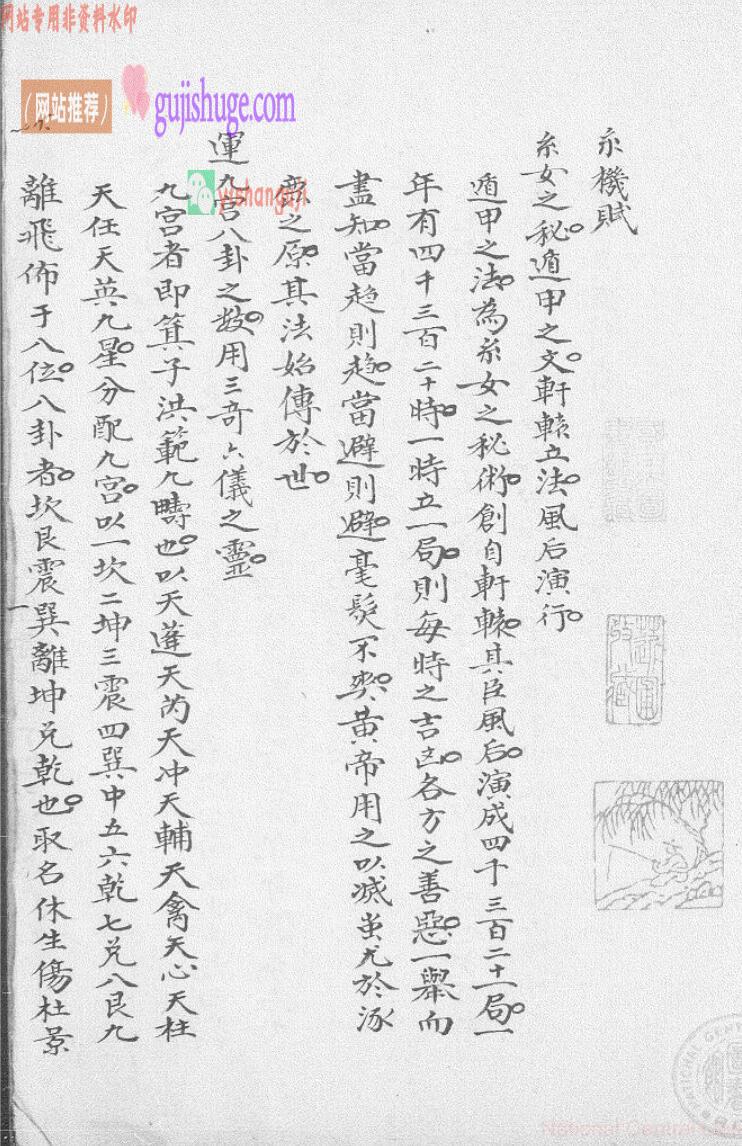 网站专用非资料水印
（网站推荐）
gujishuge.com
yishanguji
玄機賦
玄女之秘遁甲之文軒轅立法風后演行
遁甲之法為玄女之秘術創自軒轅其臣風后演成四千三百二十一局一
年有四千三百二十時一時立一局則每時之吉凶各方之善惡一舉而
盡知當趋則趋當避則避毫髮不爽黄帝用之以滅蚩尤於涿
鹿之原其法始傳於世
運九宮八卦之數用三竒六儀之靈
九宮者即箕子洪範九疇也以天蓬天芮天冲天輔天禽天心天柱
天任天英九星分配九宮以一坎二坤三震四巽中五六乾七兑八艮九
離飛佈于八位八卦者坎艮震巽離坤兑乾也取名休生傷杜景
National Central